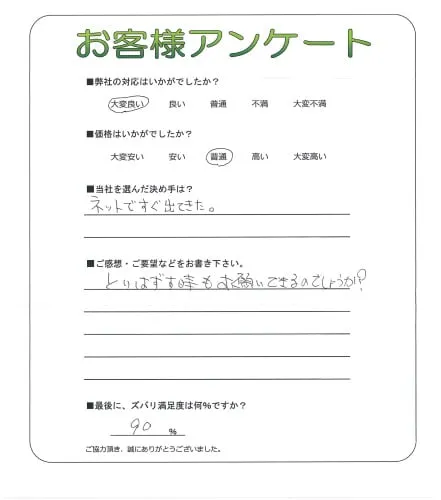 お客様アンケート
■弊社の対応はいかがでしたか？
大変良い 良い 普通 不満 大変不満
■価格はいかがでしたか？
大変安い 安い 普通 高い 大変高い
■当社を選んだ決め手は？
ネットですぐ出てきた。
■ご感想・ご要望などをお書き下さい。
とりはずす時もお願いできるのでしょうか？
■最後に、ズバリ満足度は何％ですか？
90 ％
ご協力頂き、誠にありがとうございました。